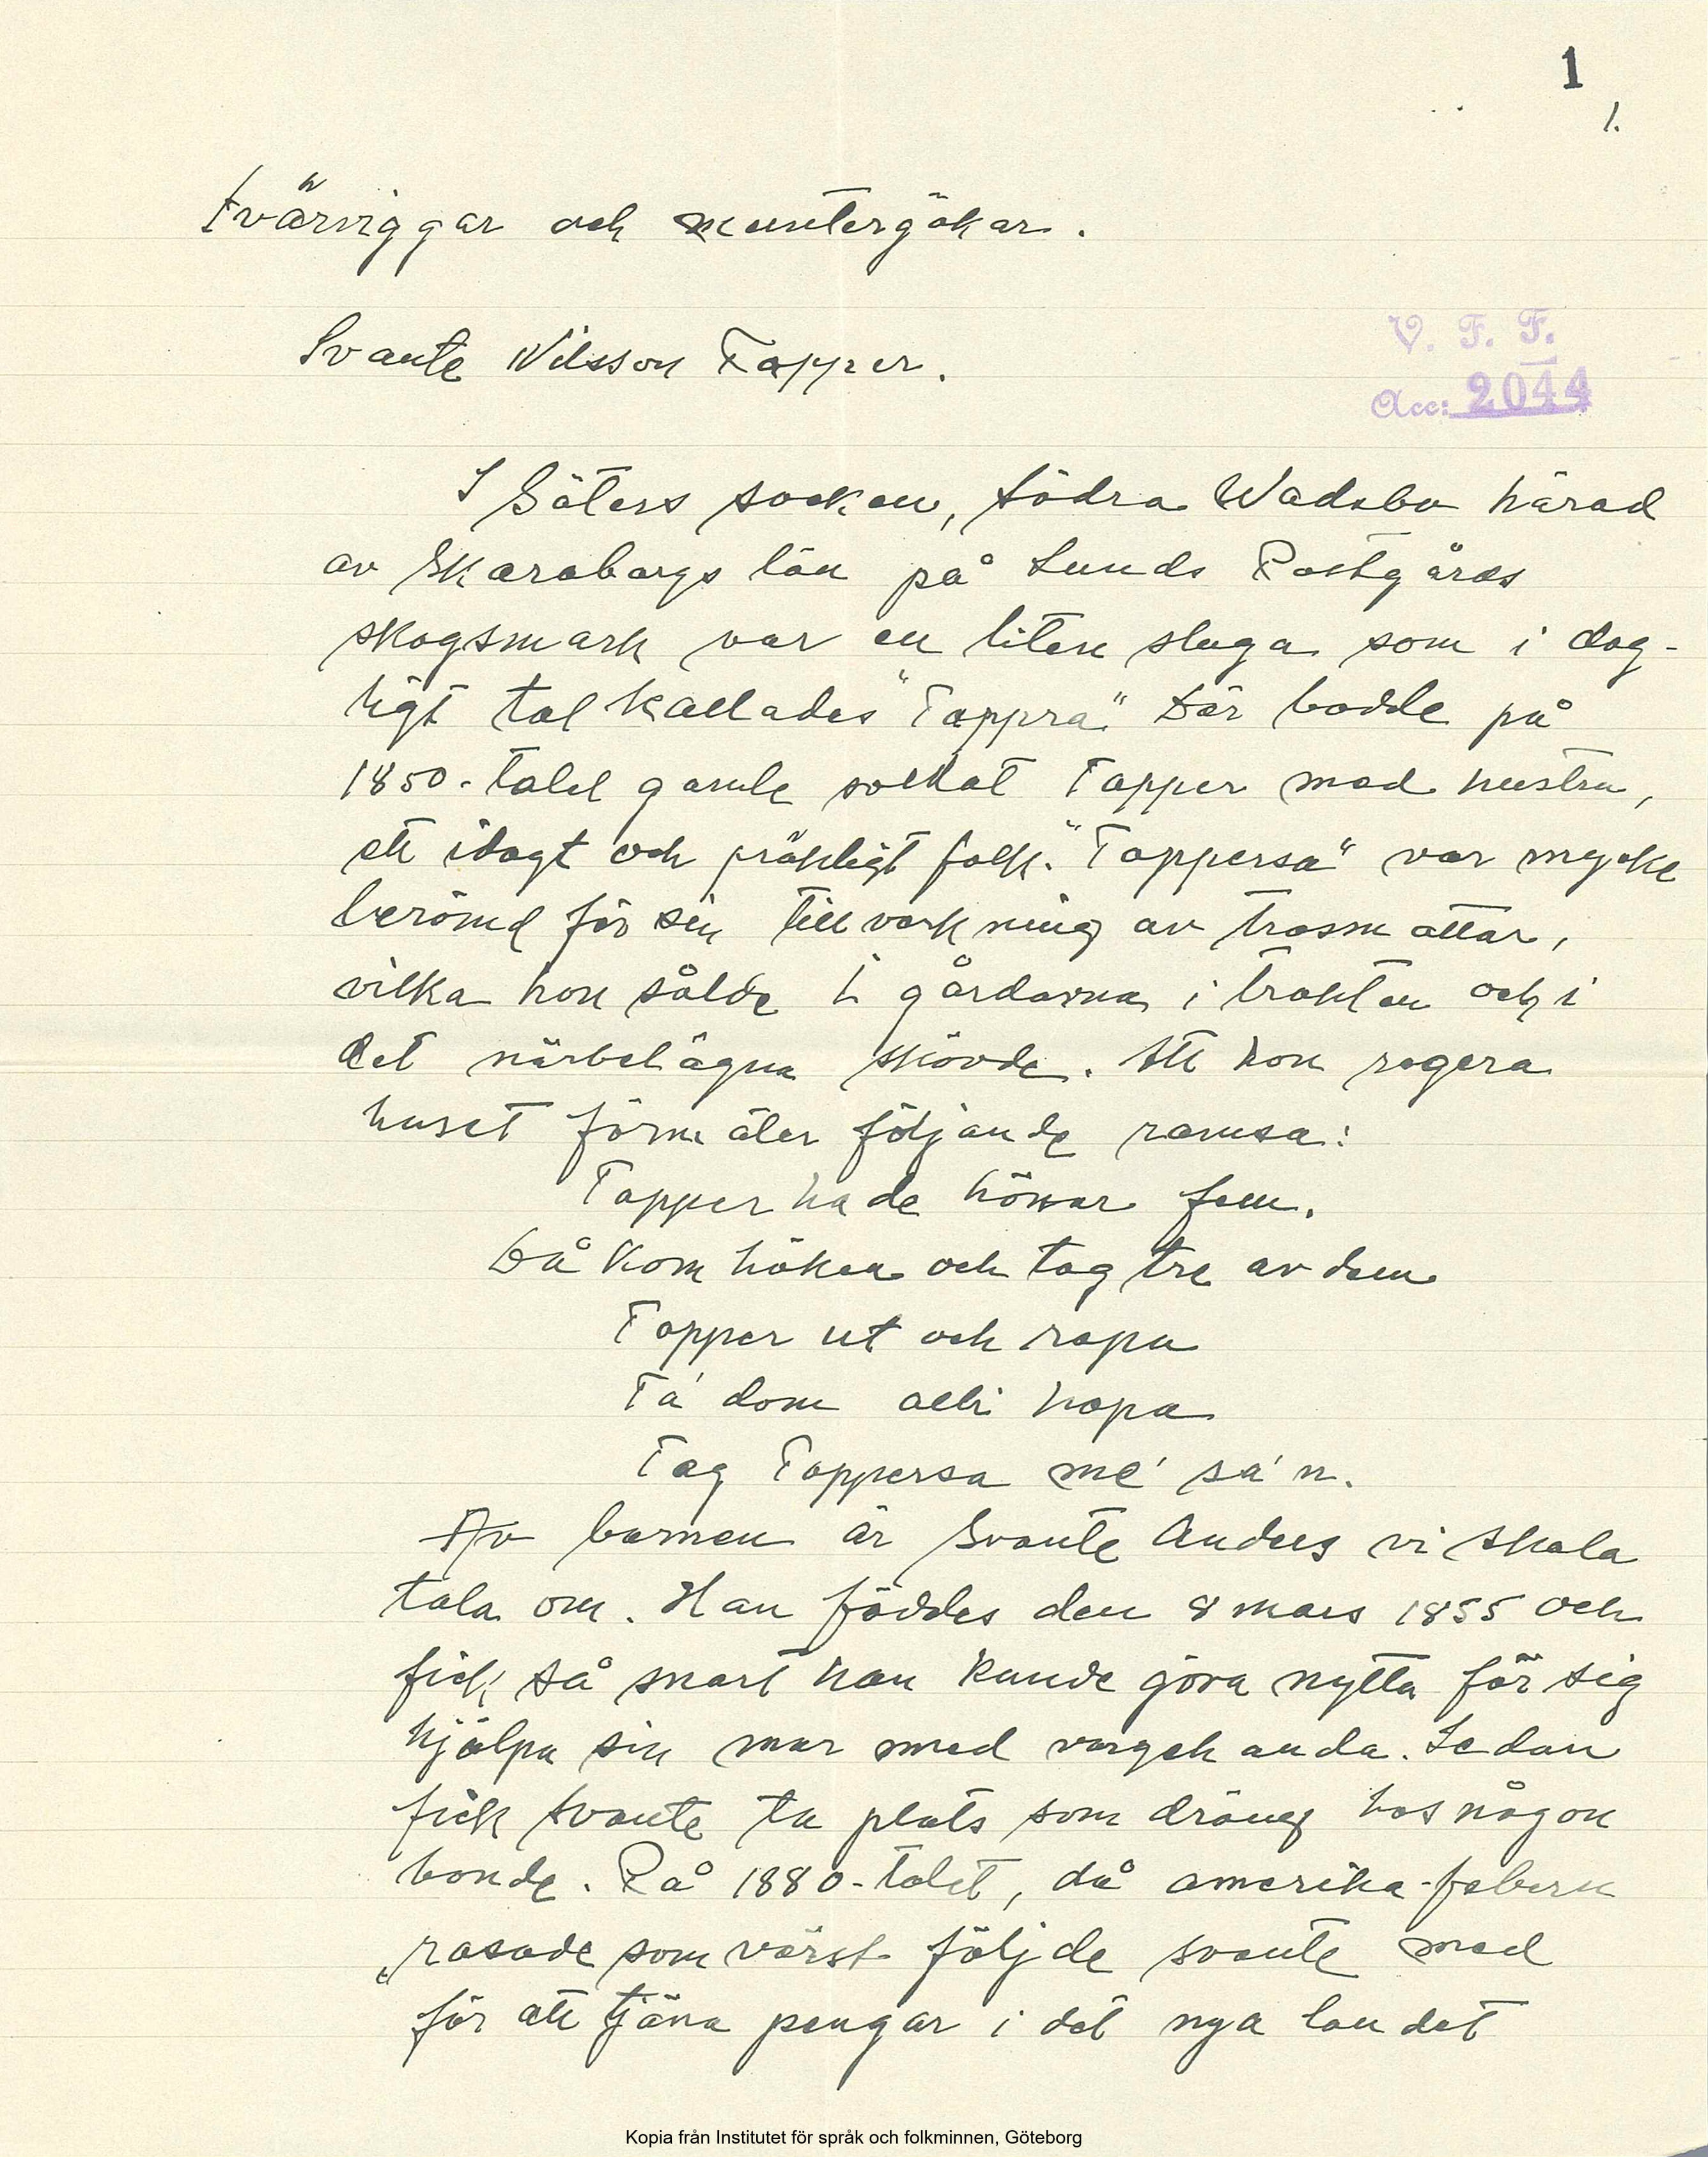 1
1.
Tvärviggar och muntergökar.
Svante Nilsson Tapper.
V. F. F.
Acc: 2044
I Säters socken, södra Wadsbo härad
av Skaraborgs län på Lunds Rostgårds
skogsmark var en liten stuga som i dag-
ligt tal kallades "Tappra". Där bodde på
1850-talet gamle soldat Tapper med hustru,
ett idogt och präktigt folk. "Tappersa" var mycke
berömd för sin tillverkning av trasmattor,
vilka hon sålde i gårdarna i trakten och i
det närbelägna Skövde. Att hon regera
huset förmäler följande ramsa:
Tapper hade hönor fem.
Då kom höken och tog tre av dem
Tapper ut och ropa
Ta' dom allihopa
Tag Tappersa me' sa'n.
Av barnen är Svante Anders vi skola
tala om. Han föddes den 8 mars 1855 och
fick så snart han kunde göra nytta för sig
hjälpa sin mor med vargehanda. Sedan
fick Svante ta plats som dräng hos någon
bonde. På 1880-talet, då amerika-febern
rasade som värst följde Svante med
för att tjäna pengar i det nya landet
Kopia från Institutet för språk och folkminnen, Göteborg